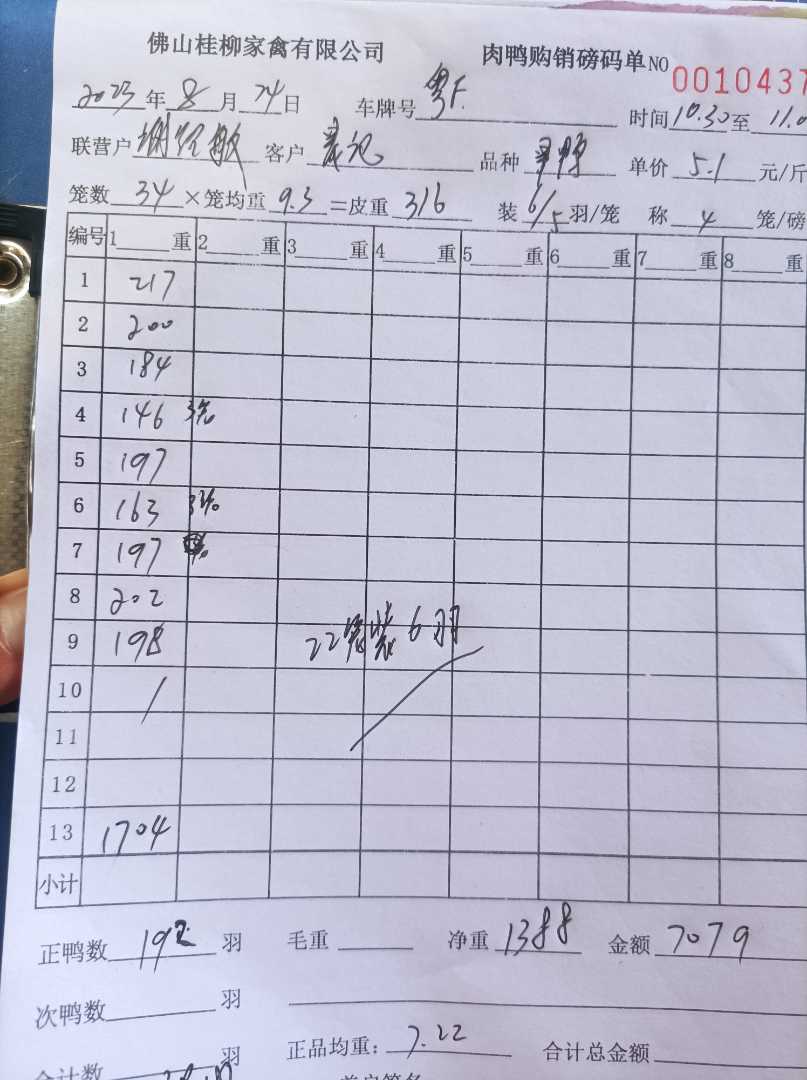 佛山桂柳家禽有限公司 肉鸭购销磅码单 NO 0010437
2023 年 8 月 24 日 车牌号 粤F. 时间 10.30 至 11.0
联营户 客户 品种 单价 5.1 元/斤
笼数 34 ×笼均重 9.3 =皮重 316 装 6/5 羽/笼 称 4 笼/磅
编号 1 重 2 重 3 重 4 重 5 重 6 重 7 重 8 重
1 217
2 200
3 184
4 146 3笼
5 197
6 163 3笼
7 197
8 202
9 198 22笼装6羽
10 /
11
12
13 1704
小计
正鸭数 192 羽 毛重 净重 1388 金额 7079
次鸭数 羽
合计数 羽 正品均重: 7.22 合计总金额